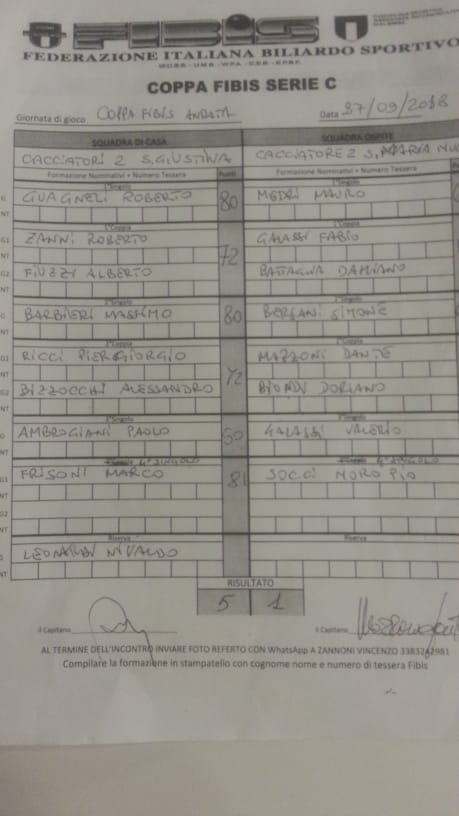 FIBIS
FEDERAZIONE ITALIANA BILIARDO SPORTIVO
COPPA FIBIS SERIE C
Giornata di gioco COPPA FIBIS ANDATA Data 27/09/2018
SQUADRA DI CASA SQUADRA OSPITE
CACCIATORI 2 S,GIUSTINA CACCIATORE 2 S,
Formazione Nominativi + Numero Tessera Punti Formazione Nominativi + Numero Tessera
1°Singolo
GUAGNELI ROBERTO 80 MEDRI MAURO
NT
1°Coppia
G1 ZANNI ROBERTO 72 GALASSI FABIO
NT
G2 FIUZZI ALBERTO BATTAGLIA DAMIANO
NT
2°Singolo
BARBIERI MASSIMO 80 BERSANI SIMONE
NT
2°Coppia
G1 RICCI PIERGIORGIO 72 MAZZONI DANTE
NT
G2 BIZZOCCHI ALESSANDRO BIONDI DORIANO
NT
3°Singolo
AMBROGIANI PAOLO GALASSI VALERIO
NT
4° SINGOLO 4° SINGOLO
G1 FRISONI MARCO 81 SOCCI MORO PIO
NT
G2
NT
Riserva Riserva
LEONARDI NIVALDO
NT
RISULTATO
5 1
Il Capitano Il Capitano
AL TERMINE DELL'INCONTRO INVIARE FOTO REFERTO CON WhatsApp A ZANNONI VINCENZO 3383242981
Compilare la formazione in stampatello con cognome nome e numero di tessera Fibis